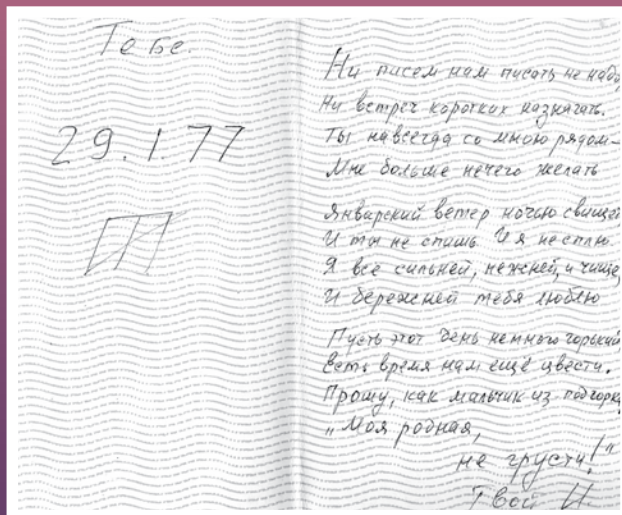 Тебе.
29.1.77
Ни писем нам писать не надо,
Ни встреч коротких назначать.
Ты навсегда со мною рядом –
Мне больше нечего желать
Январский ветер ночью свищет
И ты не спишь И я не сплю.
Я всё сильней, нежней, и чище,
И бережней тебя люблю
Пусть этот день немного горький
Есть время нам ещё цвести.
Прошу, как мальчик из подгорки,
„Моя родная,
не грусти!"
Твой И.